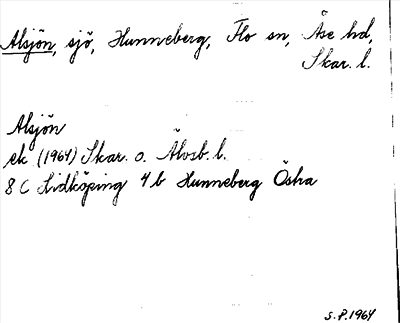 Alsjön, sjö, Hunneberg, Flo sn, Åse hd,
Skar. l.
Alsjön
ek (1964) Skar. o. Älvsb. l.
8 C Lidköping 4 b Hunneberg Östra
S.P. 1964